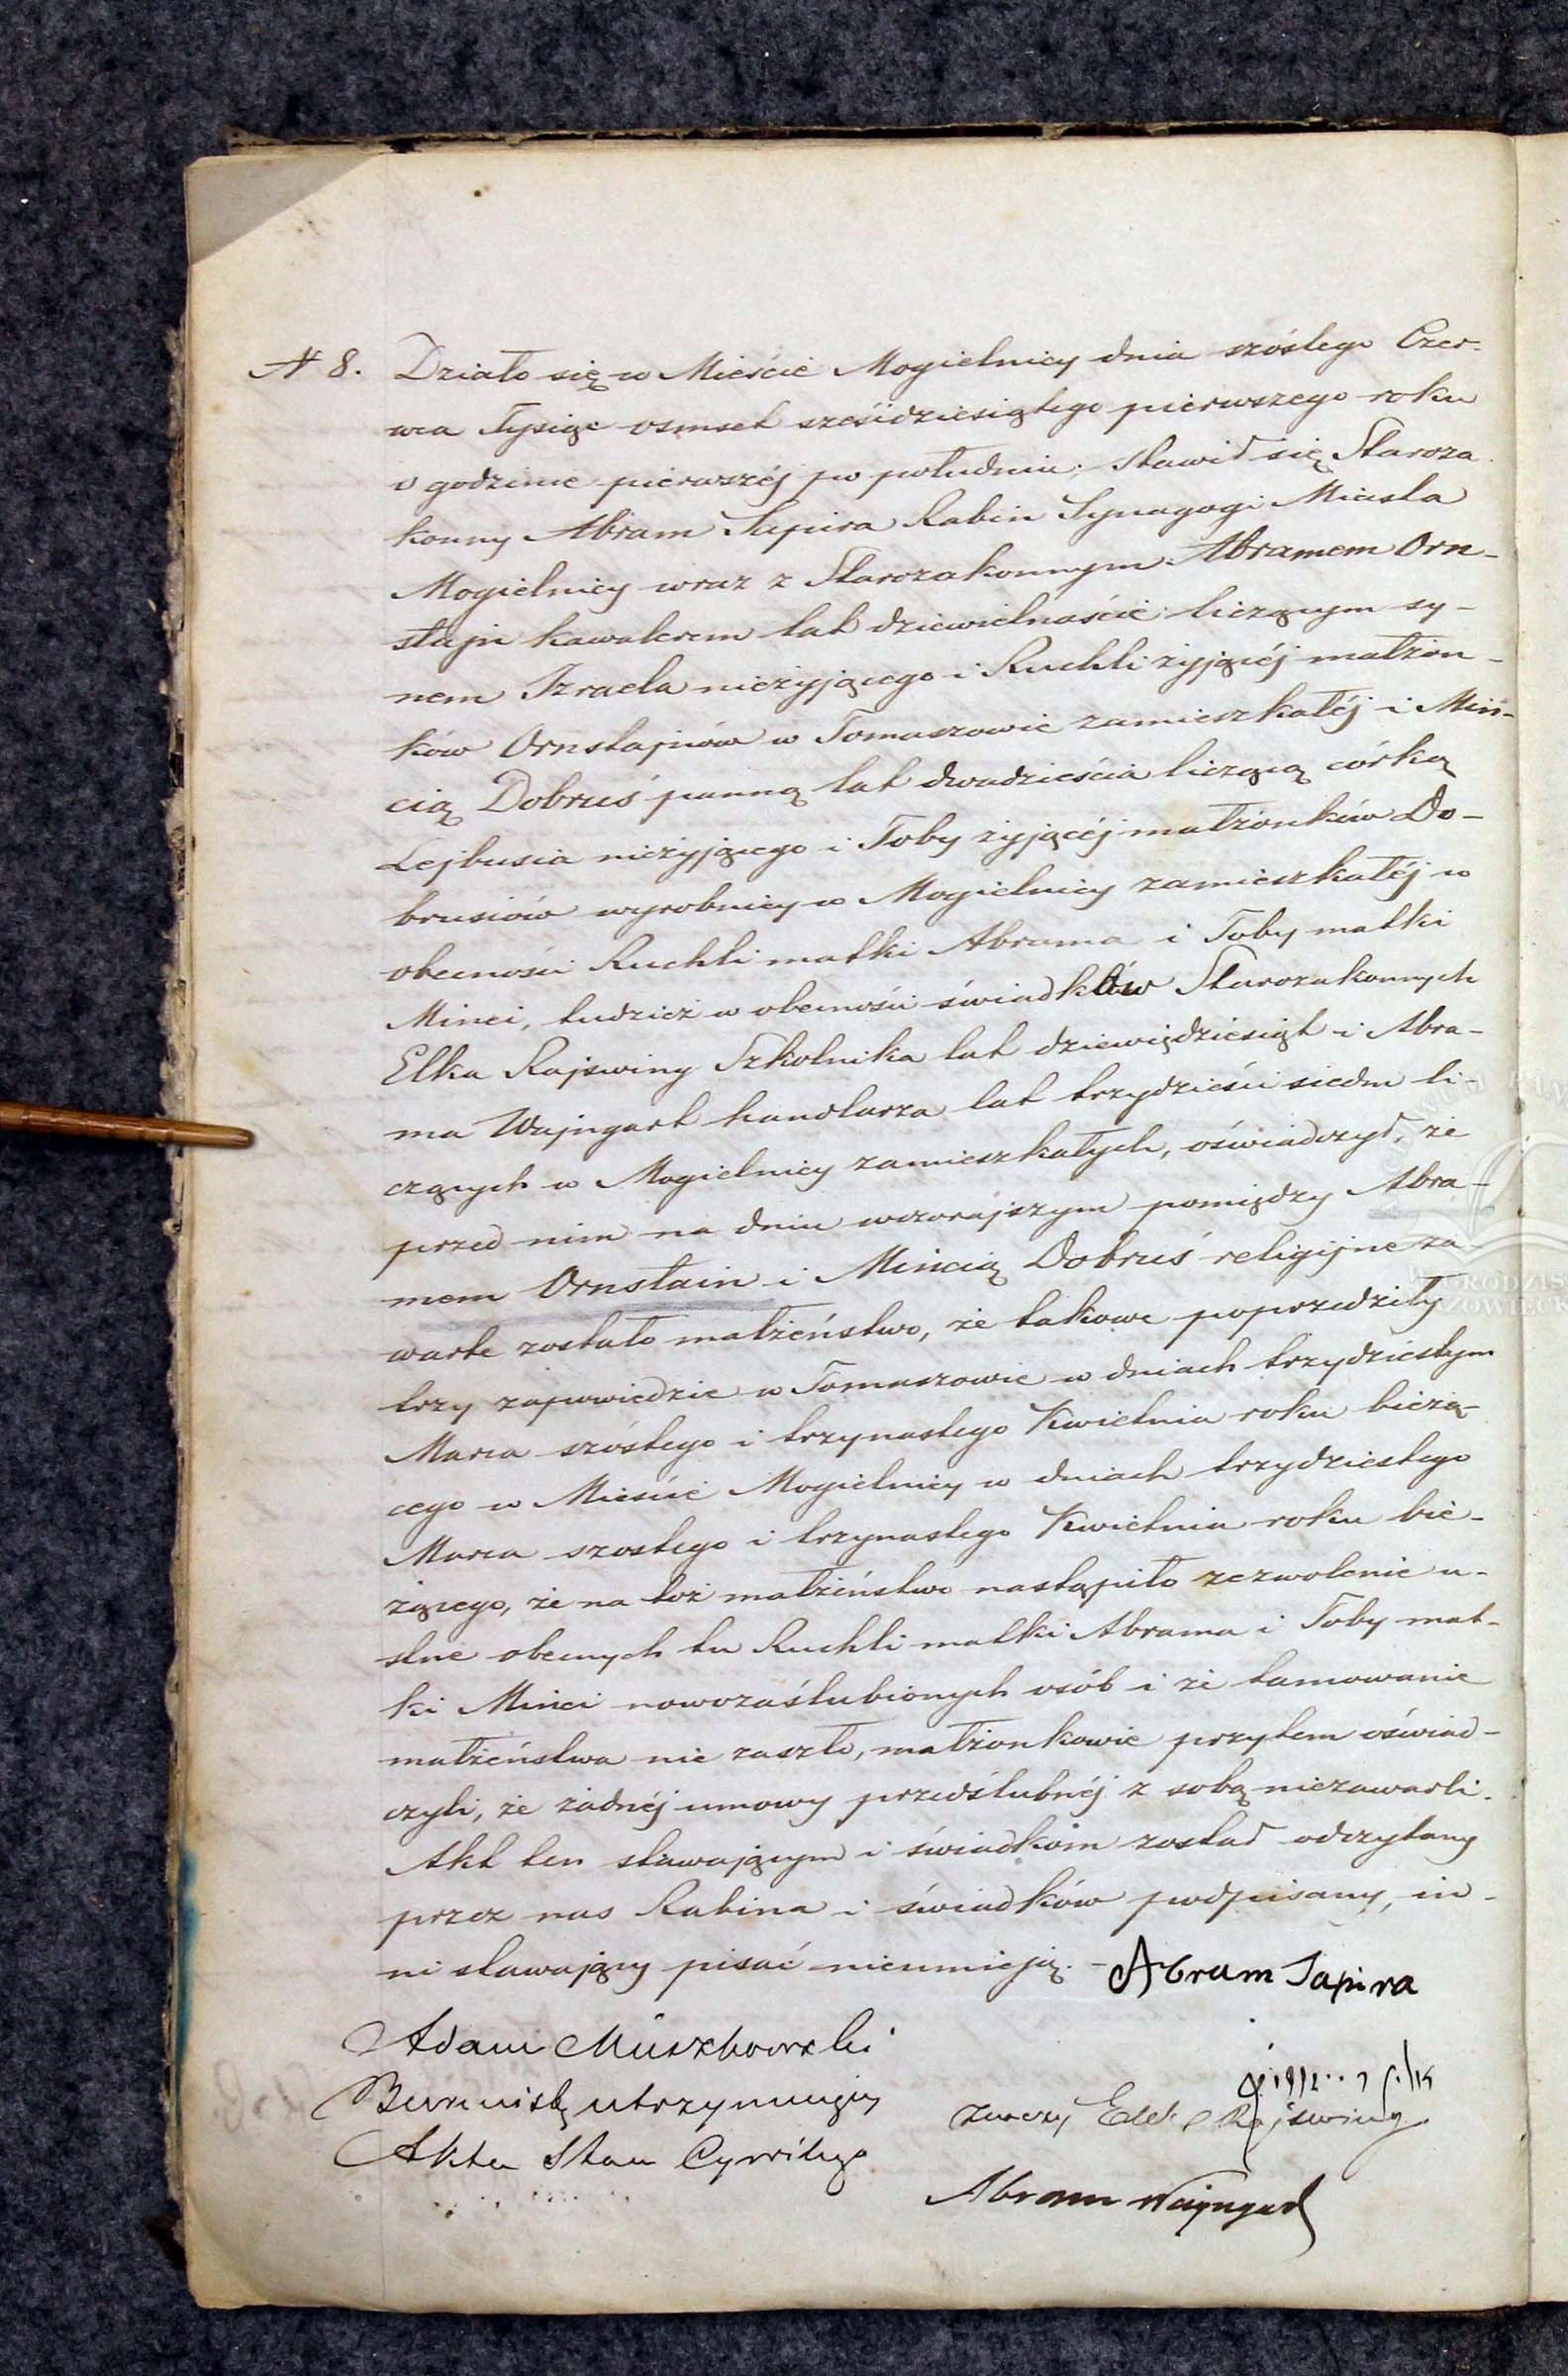 N 8. Działo się w Mieście Mogielnicy dnia szóstego Czer-
wca tysiąc osmset sześćdziesiątego pierwszego roku
o godzinie pierwszéj po południu. Stawił się Staroza
konny Abram Sapira Rabin Synagogi Miasta
Mogielnicy wraz z Starozakonnym Abramem Orn-
stajn kawalerem lat dziewietnaście liczącym sy-
nem Izraela nieżyjącego i Ruchli żyjącéj małżon-
ków Ornstajnów w Tomaszowie zamieszkałéj i Miń-
cią Dobruś panną lat dwadzieścia liczącą córką
Lejbusia nieżyjącego i Toby żyjącéj małżonków Do-
brusiów wyrobnicy w Mogielnicy zamieszkałéj w
obecności Ruchli matki Abrama i Toby matki
Minci, tudzież w obecności świadków Starozakonnych
Elka Rajswing Szkolnika lat dziewiędziesiąt i Abra-
ma Wajngart handlarza lat trzydzieści siedm li-
czących w Mogielnicy zamieszkałych, oświadczył, że
przed nim na dniu wczorajszym pomiędzy Abra-
mem Ornstain i Mińcią Dobruś religijne za-
warte zostało małżeństwo, że takowe poprzedziły
trzy zapowiedzie w Tomaszowie w dniach trzydziestym
Marca szóstego i trzynastego Kwietnia roku bieżą-
cego w Mieście Mogielnicy w dniach trzydziestego
Marca szostego i trzynastego Kwietnia roku bie-
żącego, że na toż małżeństwo nastąpiło zezwolenie u-
stne obecnych tu Ruchli matki Abrama i Toby mat-
ki Mińci nowozaślubionych osób i że tamowanie
małżeństwa nie zaszło, małżonkowie przytem oświad-
czyli, że żadnéj umowy przedślubnéj z sobą niezawarli.
Akt ten stawającym i świadkom został odczytany
przez nas Rabina i świadków podpisany, in-
ni stawający pisać nieumieją. - Abram Sapira
Adam Muszkowski
Burmistrz utrzymujący
Akta Stanu Cywilnego
znaczy Elek Rajswing
Abram Wajngart